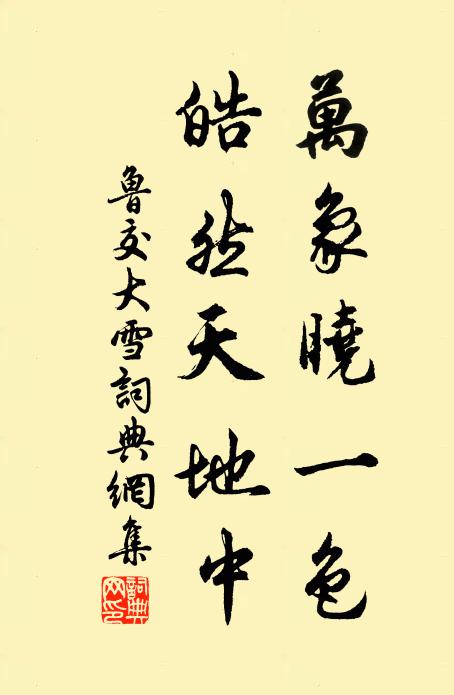 萬象曉一色
皓然天地中
魯交大雪詞典網集
詞典网印